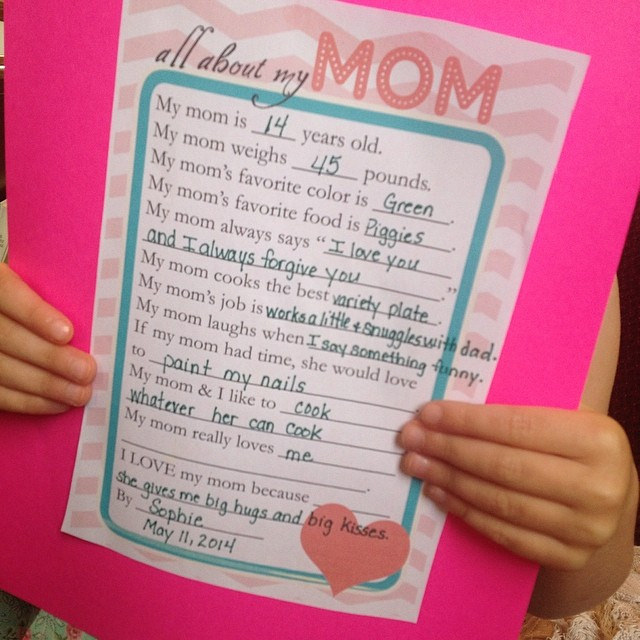 all about my MOM
My mom is 14 years old.
My mom weighs 45 pounds.
My mom's favorite color is Green.
My mom's favorite food is Piggies.
My mom always says "I love you
and I always forgive you."
My mom cooks the best variety plate.
My mom's job is works a little & snuggles with dad.
My mom laughs when I say something funny.
If my mom had time, she would love
to paint my nails.
My mom & I like to cook
whatever her can cook
My mom really loves me
.
I LOVE my mom because
she gives me big hugs and big kisses.
By Sophie
May 11, 2014